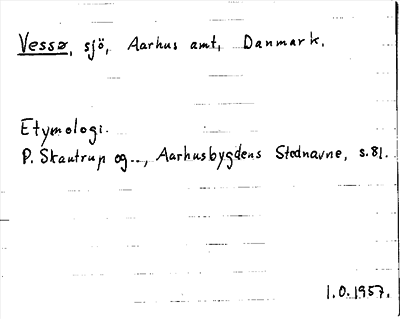 Vessø, sjö, Aarhus amt, Danmark.
Etymologi.
P. Skautrup og..., Aarhusbygdens Stednavne, s.81.
1.O.1957.